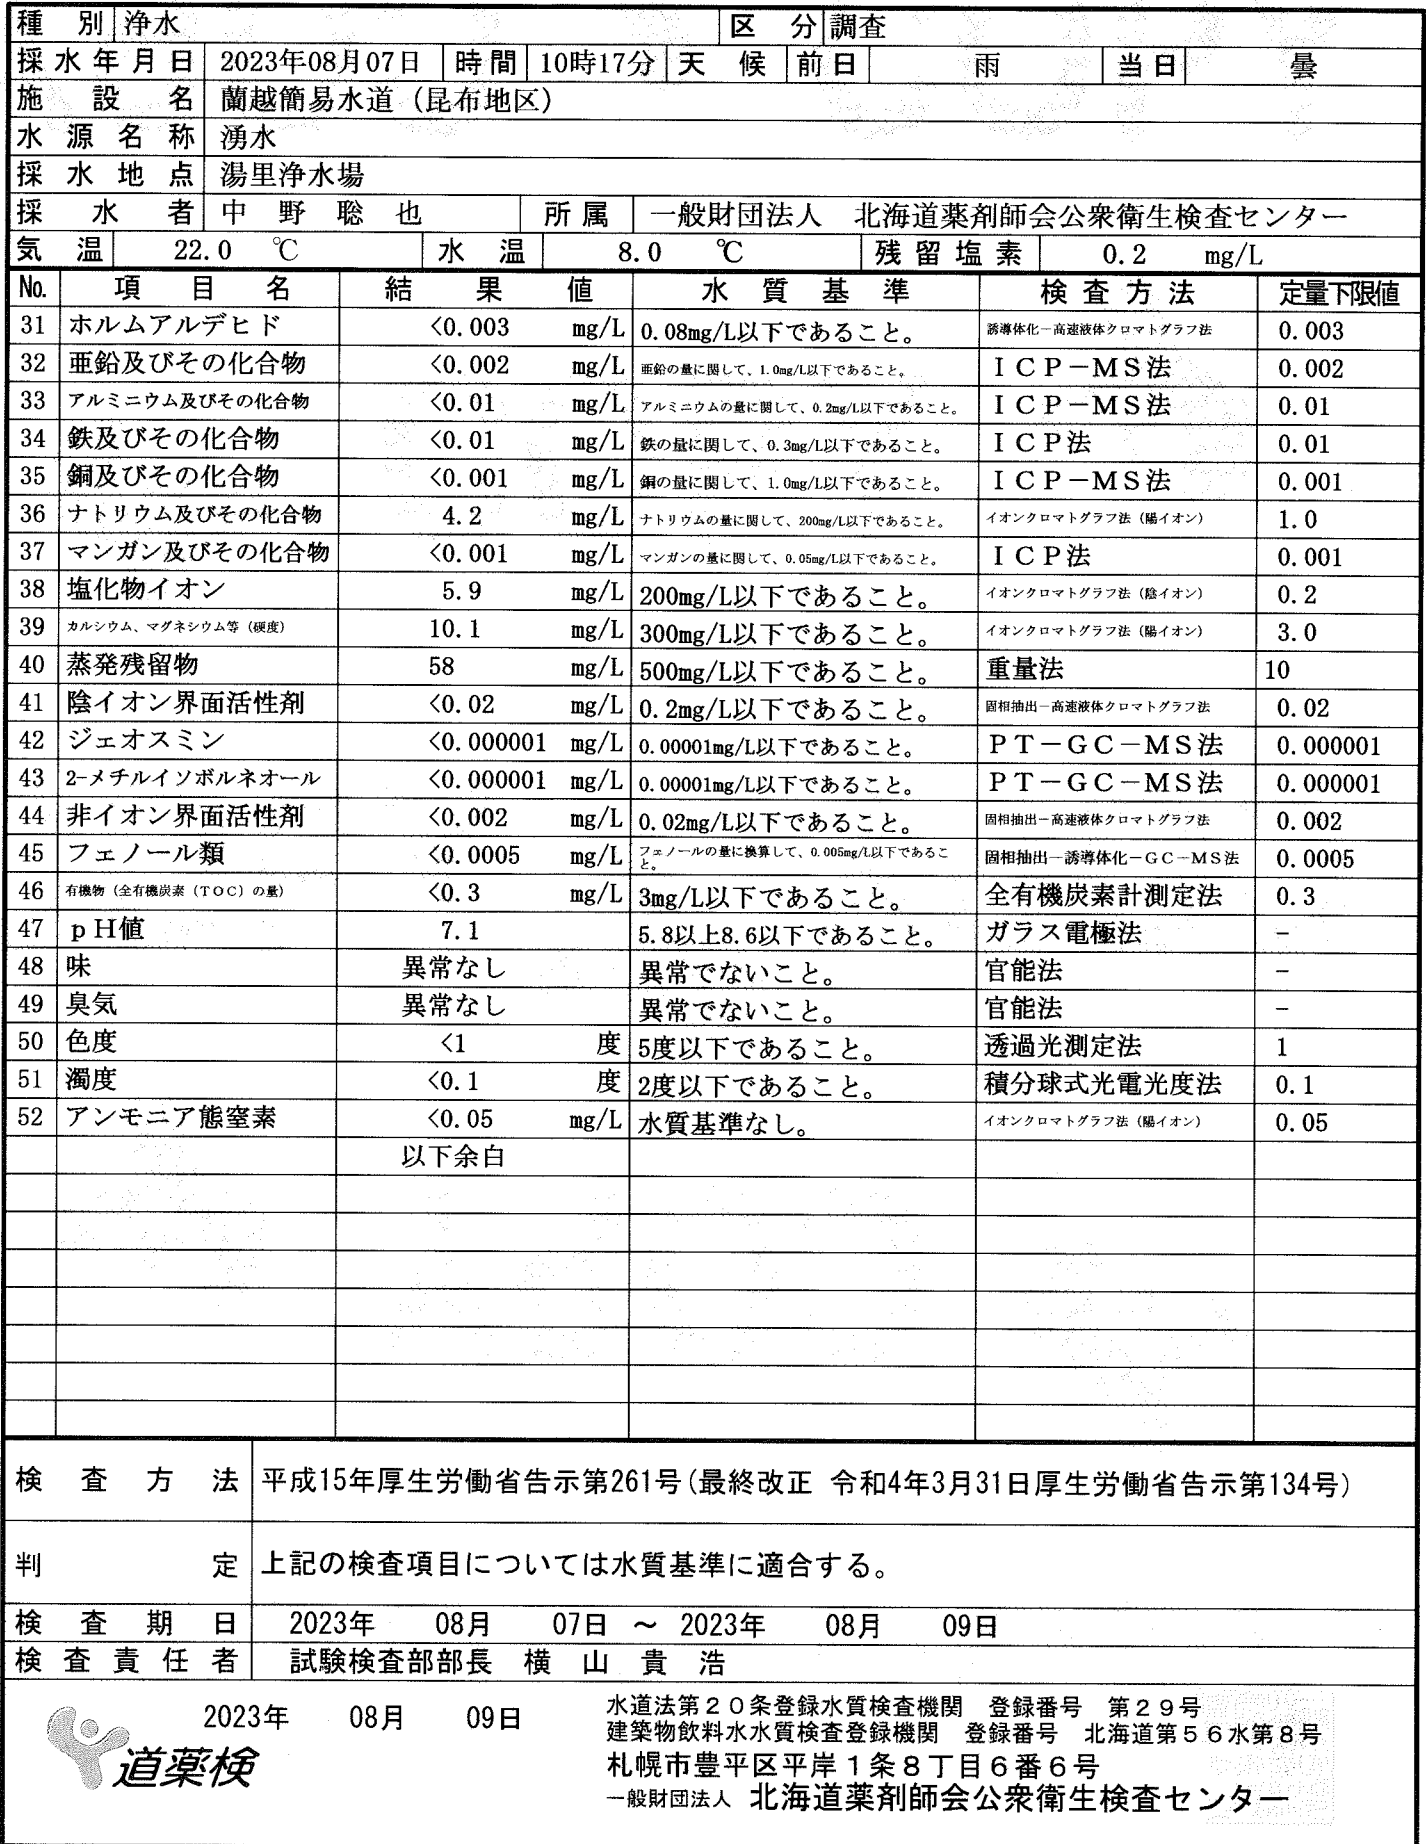 種別 浄水 区分 調査
採水年月日 2023年08月07日 時間 10時17分 天候 前日 雨 当日 曇
施設名 蘭越簡易水道（昆布地区）
水源名称 湧水
採水地点 湯里浄水場
採水者 中野 聡也 所属 一般財団法人 北海道薬剤師会公衆衛生検査センター
気温 22.0 ℃ 水温 8.0 ℃ 残留塩素 0.2 mg/L
No. 項目名 結果値 水質基準 検査方法 定量下限値
31 ホルムアルデヒド <0.003 mg/L 0.08mg/L以下であること。 誘導体化－高速液体クロマトグラフ法 0.003
32 亜鉛及びその化合物 <0.002 mg/L 亜鉛の量に関して、1.0mg/L以下であること。 ＩＣＰ－ＭＳ法 0.002
33 アルミニウム及びその化合物 <0.01 mg/L アルミニウムの量に関して、0.2mg/L以下であること。 ＩＣＰ－ＭＳ法 0.01
34 鉄及びその化合物 <0.01 mg/L 鉄の量に関して、0.3mg/L以下であること。 ＩＣＰ法 0.01
35 銅及びその化合物 <0.001 mg/L 銅の量に関して、1.0mg/L以下であること。 ＩＣＰ－ＭＳ法 0.001
36 ナトリウム及びその化合物 4.2 mg/L ナトリウムの量に関して、200mg/L以下であること。 イオンクロマトグラフ法（陽イオン） 1.0
37 マンガン及びその化合物 <0.001 mg/L マンガンの量に関して、0.05mg/L以下であること。 ＩＣＰ法 0.001
38 塩化物イオン 5.9 mg/L 200mg/L以下であること。 イオンクロマトグラフ法（陰イオン） 0.2
39 カルシウム、マグネシウム等（硬度） 10.1 mg/L 300mg/L以下であること。 イオンクロマトグラフ法（陽イオン） 3.0
40 蒸発残留物 58 mg/L 500mg/L以下であること。 重量法 10
41 陰イオン界面活性剤 <0.02 mg/L 0.2mg/L以下であること。 固相抽出－高速液体クロマトグラフ法 0.02
42 ジェオスミン <0.000001 mg/L 0.00001mg/L以下であること。 ＰＴ－ＧＣ－ＭＳ法 0.000001
43 2-メチルイソボルネオール <0.000001 mg/L 0.00001mg/L以下であること。 ＰＴ－ＧＣ－ＭＳ法 0.000001
44 非イオン界面活性剤 <0.002 mg/L 0.02mg/L以下であること。 固相抽出－高速液体クロマトグラフ法 0.002
45 フェノール類 <0.0005 mg/L フェノールの量に換算して、0.005mg/L以下であること。 固相抽出－誘導体化－ＧＣ－ＭＳ法 0.0005
46 有機物（全有機炭素（ＴＯＣ）の量） <0.3 mg/L 3mg/L以下であること。 全有機炭素計測定法 0.3
47 ｐＨ値 7.1 5.8以上8.6以下であること。 ガラス電極法 －
48 味 異常なし 異常でないこと。 官能法 －
49 臭気 異常なし 異常でないこと。 官能法 －
50 色度 <1 度 5度以下であること。 透過光測定法 1
51 濁度 <0.1 度 2度以下であること。 積分球式光電光度法 0.1
52 アンモニア態窒素 <0.05 mg/L 水質基準なし。 イオンクロマトグラフ法（陽イオン） 0.05
以下余白
検査方法 平成15年厚生労働省告示第261号（最終改正 令和4年3月31日厚生労働省告示第134号）
判定 上記の検査項目については水質基準に適合する。
検査期日 2023年 08月 07日 ～ 2023年 08月 09日
検査責任者 試験検査部部長 横山 貴浩
2023年 08月 09日
道薬検
水道法第２０条登録水質検査機関 登録番号 第２９号
建築物飲料水水質検査登録機関 登録番号 北海道第５６水第８号
札幌市豊平区平岸１条８丁目６番６号
一般財団法人 北海道薬剤師会公衆衛生検査センター